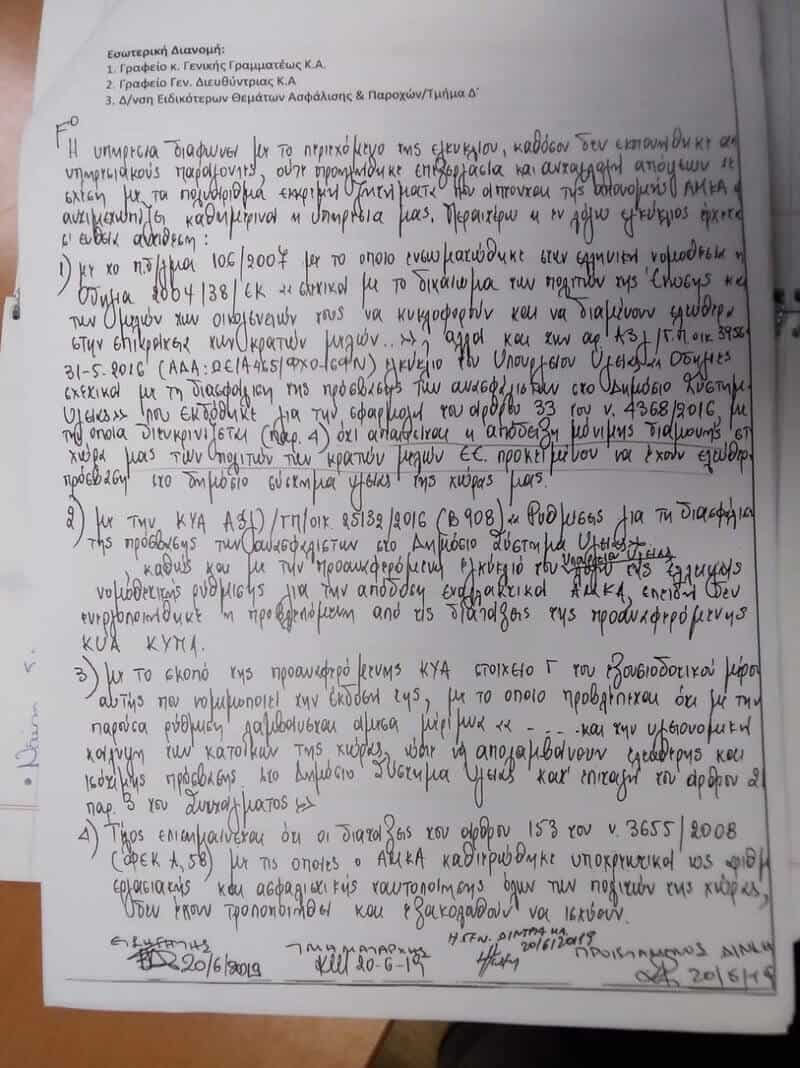 Εσωτερική Διανομή:
1. Γραφείο κ. Γενικής Γραμματέως Κ.Α.
2. Γραφείο Γεν. Διευθύντριας Κ.Α
3. Δ/νση Ειδικότερων Θεμάτων Ασφάλισης & Παροχών/Τμήμα Δ΄
Η υπηρεσία διαφωνεί με το περιεχόμενο της εγκυκλίου, καθόσον δεν εκπονήθηκε
υπηρεσιακούς παράγοντες, ούτε προηγήθηκε επεξεργασία και ανταλλαγή απόψεων σε
σχέση με τα πολυάριθμα εκκρεμή ζητήματα που άπτονται της απονομής ΑΜΚΑ
αντιμετωπίζει καθημερινά η υπηρεσία μας. Περαιτέρω η εν λόγω εγκύκλιος έρχεται
σ' ευθεία αντίθεση:
1) με το π.δ/γμα 106/2007 με το οποίο ενσωματώθηκε στην ελληνική νομοθεσία η
Οδηγία 2004/38/ΕΚ «σχετικά με το δικαίωμα των πολιτών της Ένωσης και
των μελών των οικογενειών τους να κυκλοφορούν και να διαμένουν ελεύθερα
στην επικράτεια των κρατών μελών..», αλλά και την αρ. Α3γ/Γ.Π.οικ.3956
31-5-2016 εγκύκλιο του Υπουργείου Υγείας «Οδηγίες
σχετικά με τη διασφάλιση της πρόσβασης των ανασφάλιστων στο Δημόσιο Σύστημα
Υγείας» που εκδόθηκε για την εφαρμογή του άρθρου 33 του ν. 4368/2016, με
την οποία διευκρινίζεται (παρ. 4) ότι απαιτείται η απόδειξη μόνιμης διαμονής στ
χώρα μας των πολιτών των κρατών μελών Ε.Ε. προκειμένου να έχουν ελεύθερη
πρόσβαση στο δημόσιο σύστημα υγείας της χώρας μας.
2) με την ΚΥΑ Α3γ/ΓΠ/οικ.25132/2016 (Β 908) «Ρυθμίσεις για τη διασφάλιση
της πρόσβασης των ανασφάλιστων στο Δημόσιο Σύστημα Υγείας»
καθώς και με την προαναφερόμενη εγκύκλιο του Υπουργείου Υγείας
νομοθετικής ρύθμισης για την απόδοση εναλλακτικά ΑΜΚΑ, επειδή δεν
ενεργοποιήθηκε η προβλεπόμενη από τις διατάξεις της προαναφερόμενης
ΚΥΑ ΚΥΠΑ.
3) με το σκοπό της προαναφερόμενης ΚΥΑ στοιχείο Γ του εξουσιοδοτικού μέρου
αυτής που νομιμοποιεί την έκδοσή της, με το οποίο προβλέπεται ότι με την
παρούσα ρύθμιση λαμβάνεται άμεσα μέριμνα «.... και την υγειονομική
κάλυψη των κατοίκων της χώρας, ώστε να απολαμβάνουν ελεύθερης και
ισότιμης πρόσβασης στο Δημόσιο Σύστημα Υγείας κατ' επιταγή του άρθρου 21
παρ. 3 του Συντάγματος»
4) Τέλος επισημαίνεται ότι οι διατάξεις του άρθρου 153 του ν. 3655/2008
(ΦΕΚ Α, 58) με τις οποίες ο ΑΜΚΑ καθιερώθηκε υποχρεωτικά ως αριθμ
εργασιακής και ασφαλιστικής ταυτοποίησης όλων των πολιτών της χώρας,
δεν έχουν τροποποιηθεί και εξακολουθούν να ισχύουν.
ΕΙΣΗΓΗΤΗΣ
20/6/2019
ΤΜΗΜΑΤΑΡΧΗΣ
20-6-19
Η ΓΕΝ. ΔΙΝΤΡΙΑ ΚΑ
20/6/2019
ΠΡΟΙΣΤΑΜΕΝΟΣ Δ/ΝΣΗ
20/6/19